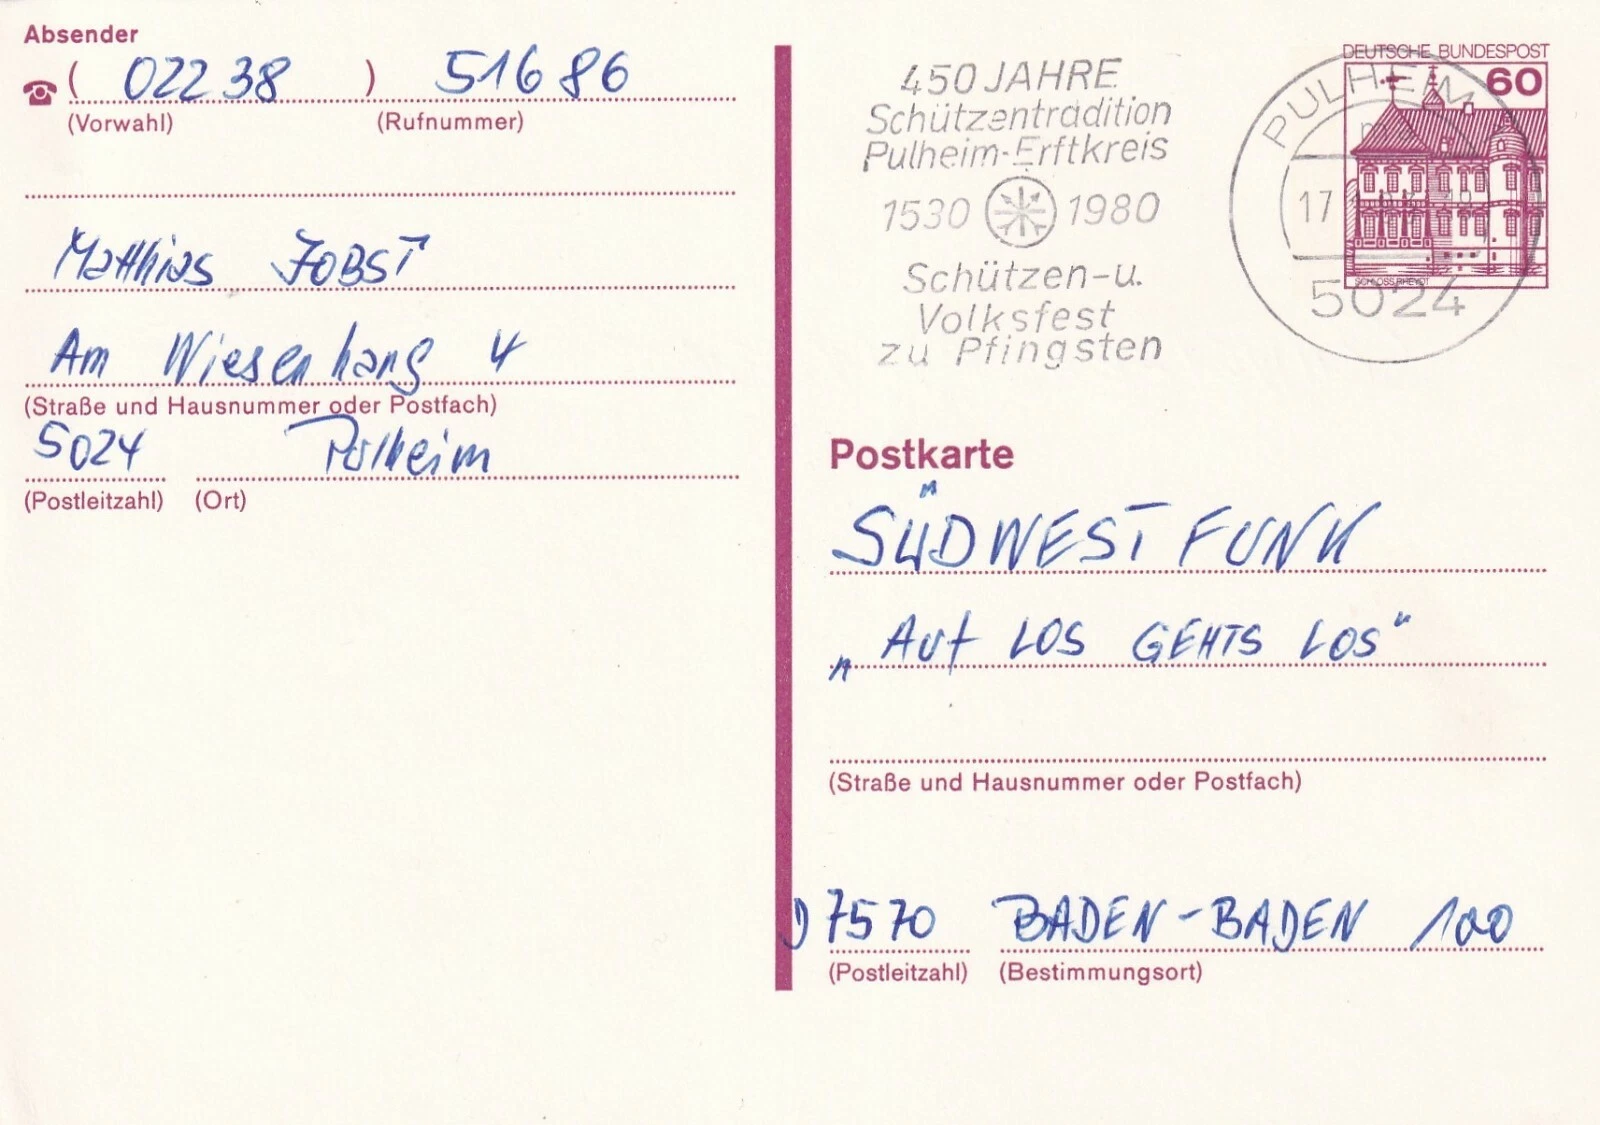 Absender
( 02238 ) 51686
(Vorwahl) (Rufnummer)
Matthias JOBST
Am Wiesenhang 4
(Straße und Hausnummer oder Postfach)
5024 Pulheim
(Postleitzahl) (Ort)
450 JAHRE
Schützentradition
Pulheim-Erftkreis
1530 1980
Schützen-u.
Volksfest
zu Pfingsten
DEUTSCHE BUNDESPOST
60
SCHLOSS RHEYDT
PULHEIM
17
5024
Postkarte
SÜDWESTFUNK
„AUf LOS GEHTS LOS“
(Straße und Hausnummer oder Postfach)
D 7570 BADEN-BADEN 100
(Postleitzahl) (Bestimmungsort)